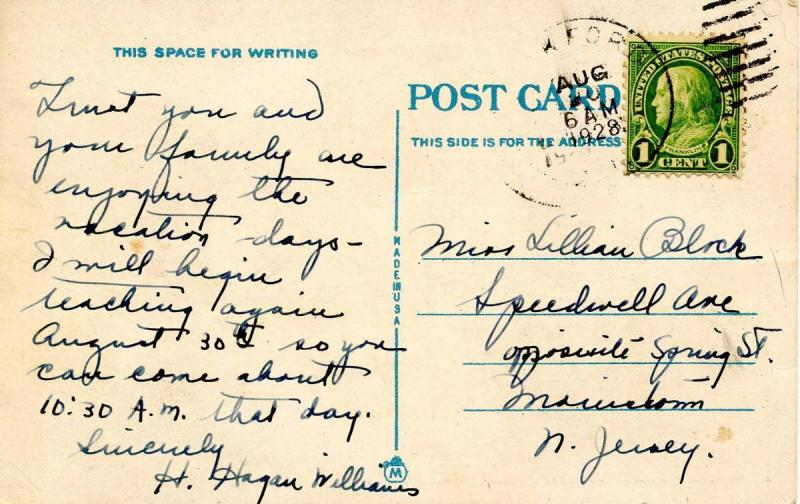 THIS SPACE FOR WRITING
Trust you and
your family are
enjoying the
vacation days-
I will begin
teaching again
August 30th so you
can come about
10:30 A.M. that day.
Sincerely
H. Hagan Williams
MADE IN USA
M
POST CARD
THIS SIDE IS FOR THE ADDRESS
AUG
6 AM
1928
UNITED STATES POSTAGE
FRANKLIN
1 CENT 1
Miss Lillian Block
Speedwell Ave
opposite Spring St.
Morristown
N. Jersey.